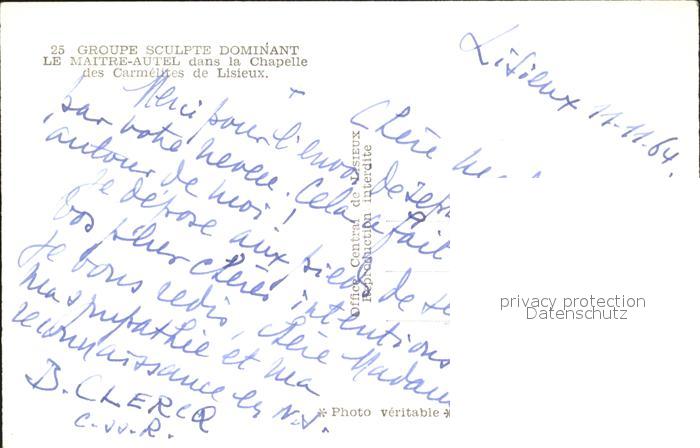 25 GROUPE SCULPTE DOMINANT
LE MAITRE-AUTEL dans la Chapelle
des Carmélites de Lisieux.
Lisieux 11.11.64.
Chère M
Merci pour l'envoi de
par votre neveu. Cela a fait
autour de moi!
Je dépose aux pieds de
vos plus chères intentions
Je vous redis, chère Madame
ma sympathie et ma
reconnaissance en N.S.
B. CLERCQ
C.SS.R.
Office Central de LISIEUX
Reproduction interdite
* Photo véritable *
privacy protection
Datenschutz